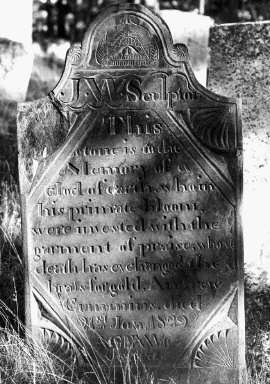 J.W. Sculptor
This
stone is to the
Memory of a
clod of earth, who in
his primrate bloom
were invested with the
garment of praise, whose
death has exchanged the
brass for gold. Andrew
Cummins, died
Jan. 1829